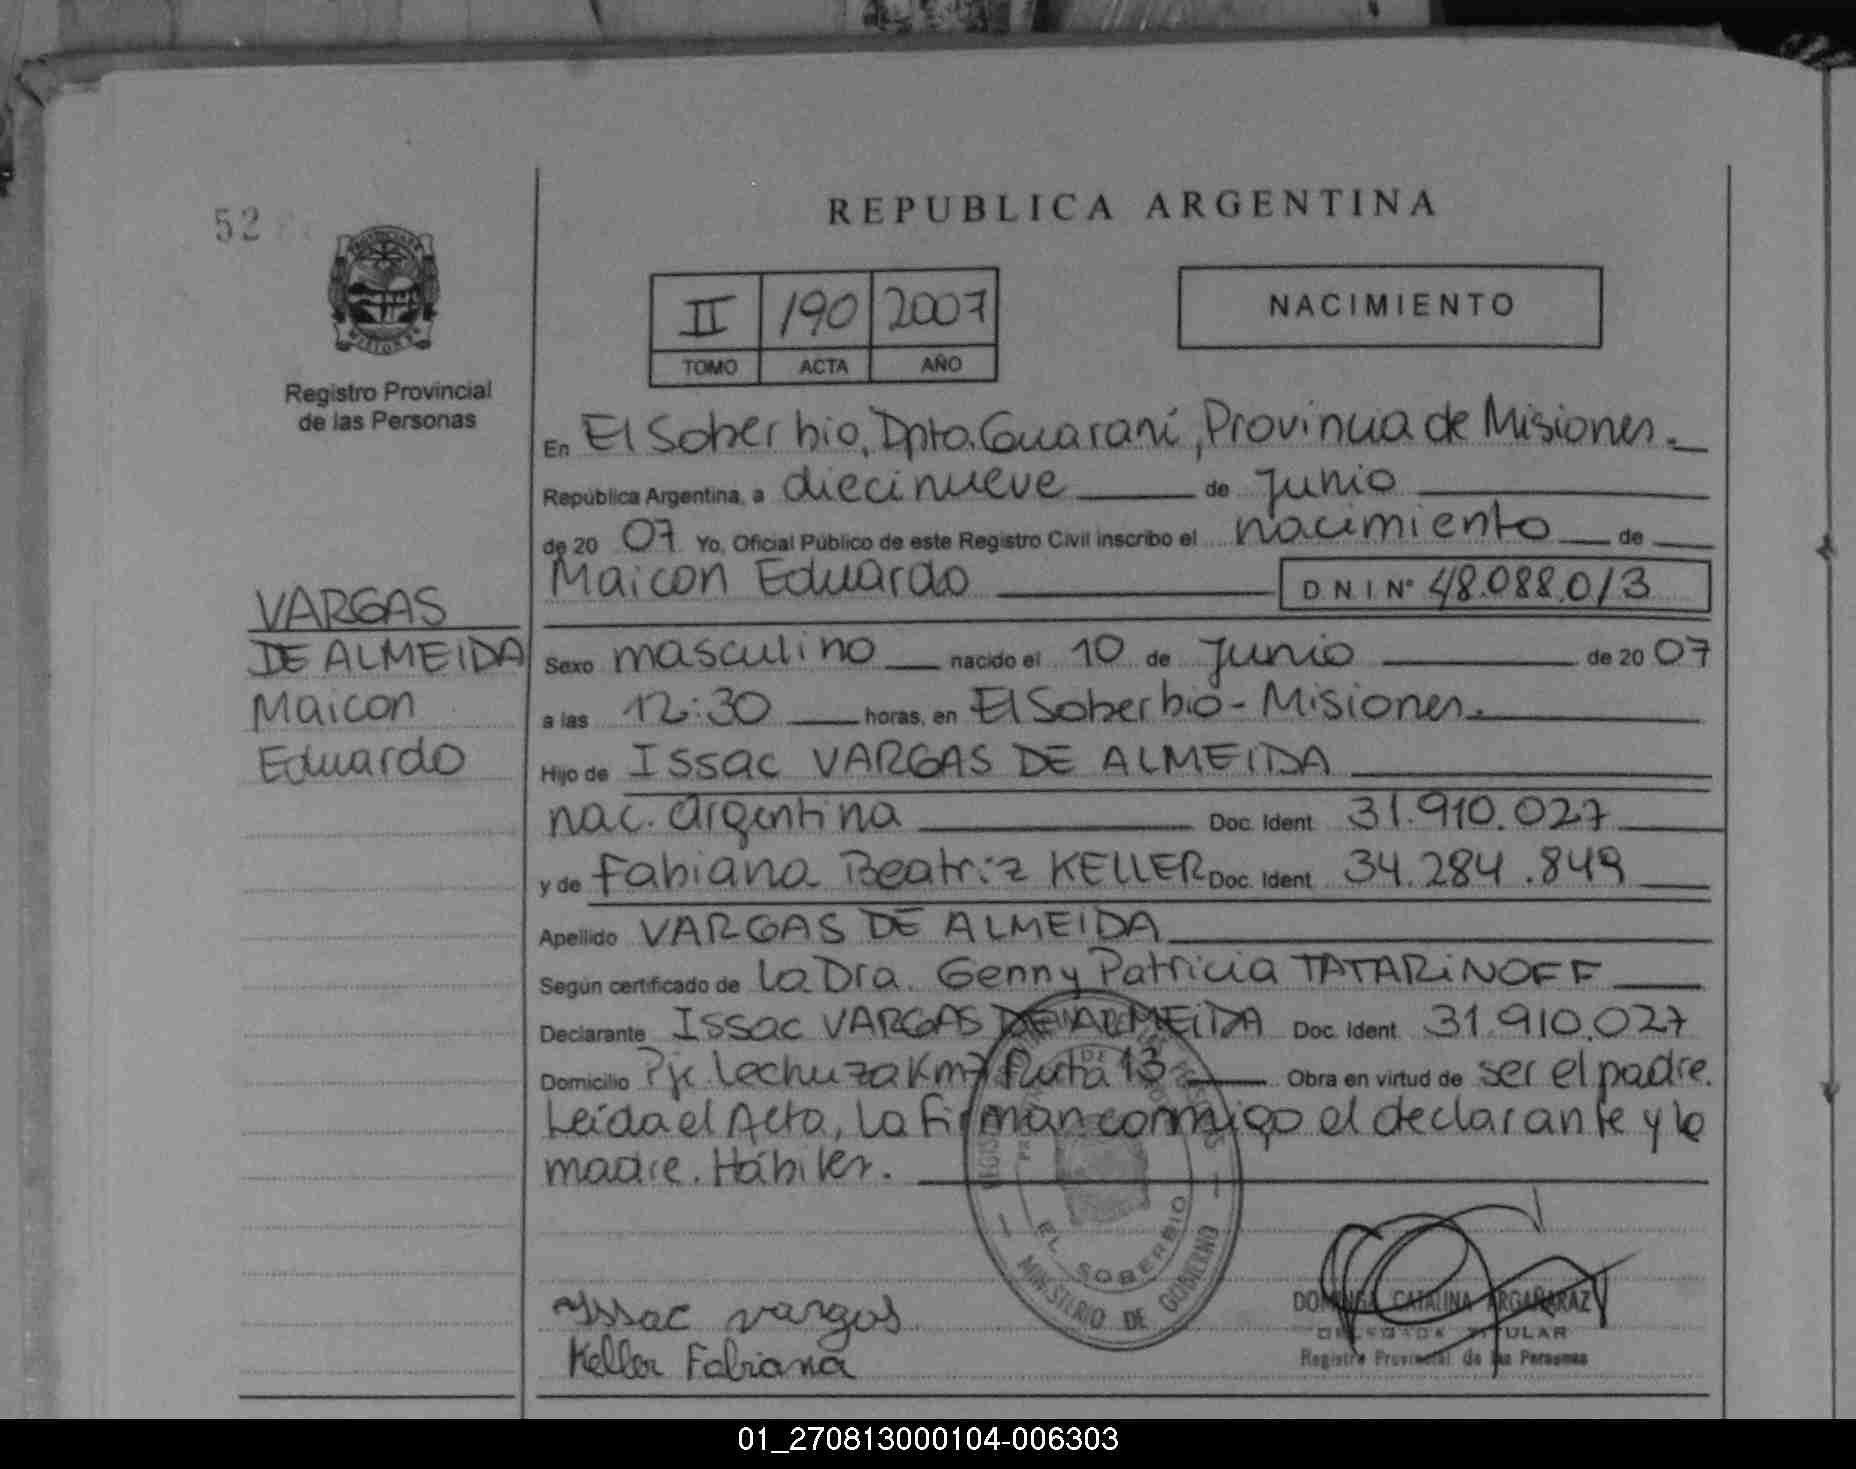 REPUBLICA ARGENTINA
52
II 190 2007
TOMO ACTA AÑO
NACIMIENTO
Registro Provincial
de las Personas
En El Soberbio, Dpto. Guaraní, Provincia de Misiones.
República Argentina, a diecinueve de Junio
de 20 07 Yo, Oficial Público de este Registro Civil inscribo el nacimiento de
Maicon Eduardo D N I Nº 48.088.013
VARGAS
DE ALMEIDA
Maicon
Eduardo
Sexo masculino nacido el 10 de Junio de 20 07
a las 12:30 horas, en El Soberbio - Misiones.
Hijo de Issac VARGAS DE ALMEIDA
nac. argentina Doc. Ident 31.910.027
y de Fabiana Beatriz KELLER Doc. Ident 34.284.849
Apellido VARGAS DE ALMEIDA
Según certificado de la Dra. Genny Patricia TATARiNOFF
Declarante Issac VARGAS DE ALMEiDA Doc. Ident 31.910.027
Domicilio Pje. Lechuza Km7 Ruta 13 Obra en virtud de ser el padre.
Leída el Acta, la firman conmigo el declarante y la
madre. Hábiles.
EL SOBERBIO
MINISTERIO DE GOBIERNO
Issac vargas
Keller Fabiana
DOMINGA CATALINA ARGAÑARAZ
DELEGADA TITULAR
Registro Provincial de las Personas
01_270813000104-006303